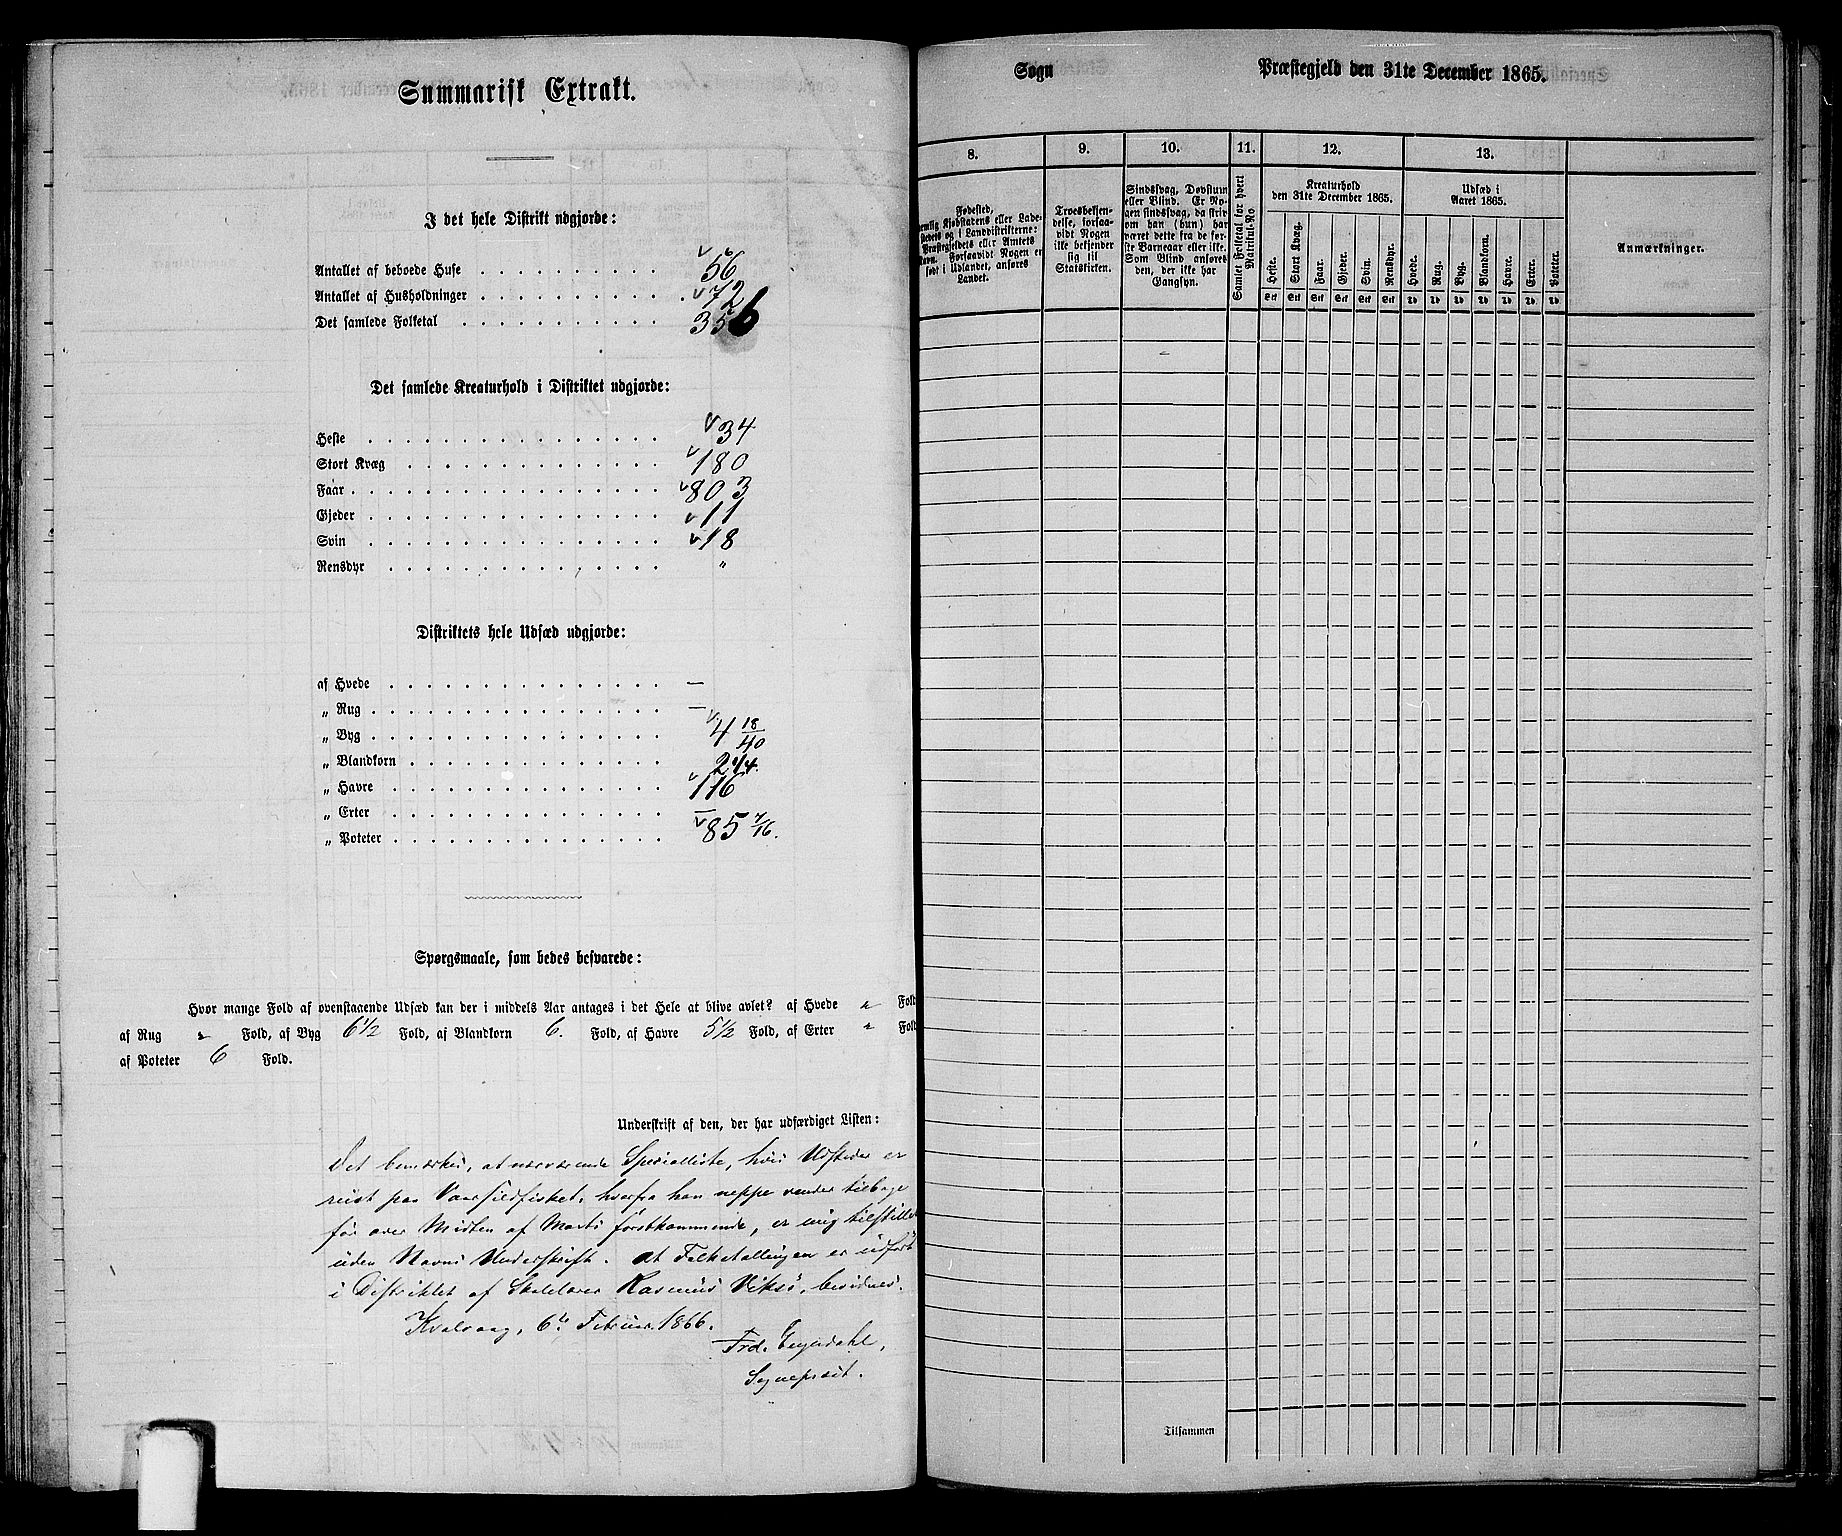 Summarisk Extrakt.
I det hele Distrikt udgjorde:
Antallet af beboede Huse 56
Antallet af Husholdninger 72
Det samlede Folketal 356
Det samlede Kreaturhold i Distriktet udgjorde:
Heste 34
Stort Kvæg 180
Faar 803
Gjeder 11
Svin 18
Rensdyr "
Distriktets hele Udsæd udgjorde:
af Hvede —
„ Rug —
„ Byg 4 18/40
„ Blandkorn 244.
„ Havre 116
„ Erter —
„ Poteter 85 7/16.
Spørgsmaale, som bedes besvarede:
Hvor mange Fold af ovenstaaende Udsæd kan der i middels Aar antages i det Hele at blive avlet? af Hvede " Fold
af Rug " Fold, af Byg 6 1/2 Fold, af Blandkorn 6. Fold, af Havre 5 1/2 Fold, af Erter " Fold
af Poteter 6 Fold.
Underskrift af den, der har udfærdiget Listen:
Det bemærkes, at nærværende Specialliste, hvis Udsteder er
reist paa Vaarsildfisket, hvorfra han neppe vender tilbage
før over Midten af Marts førstkommende, er mig tilstillet
uden Navns Underskrift. At Folketællingen er udført
i Distriktet af Skolelærer Rasmus Viksø, bevidnes.
Kvalvaag, 6te Februar 1866.
Frd. Engendahl,
Sognepræst.
Sogn Præstegjeld den 31te December 1865.
8. 9. 10. 11. 12. 13.
Fødested,
nemlig Kjøbstadens eller Ladestedets og i Landdistrikterne:
Præstegjeldets eller Amtets
Navn. Forsaavidt Nogen er
født i Udlandet, anføres
Landet.
Troesbekjendelse, forsaavidt Nogen
ikke bekjender
sig til
Statskirken.
Sindssvag, Døvstum
eller Blind. Er Nogen sindssvag, da skrives om han (hun) har
været dette fra de første Barneaar eller ikke.
Som Blind anføres
den, der ikke har
Gangsyn.
Samlet Folketal for hvert
Matrikul-No
Kreaturhold
den 31te December 1865.
Heste.
Stort Kvæg.
Faar.
Gjeder.
Svin.
Rensdyr.
Stk Stk Stk Stk Stk Stk
Udsæd i
Aaret 1865.
Hvede.
Rug.
Byg.
Blandkorn.
Havre.
Erter.
Poteter.
Td Td Td Td Td Td Td
Anmærkninger.
Tilsammen